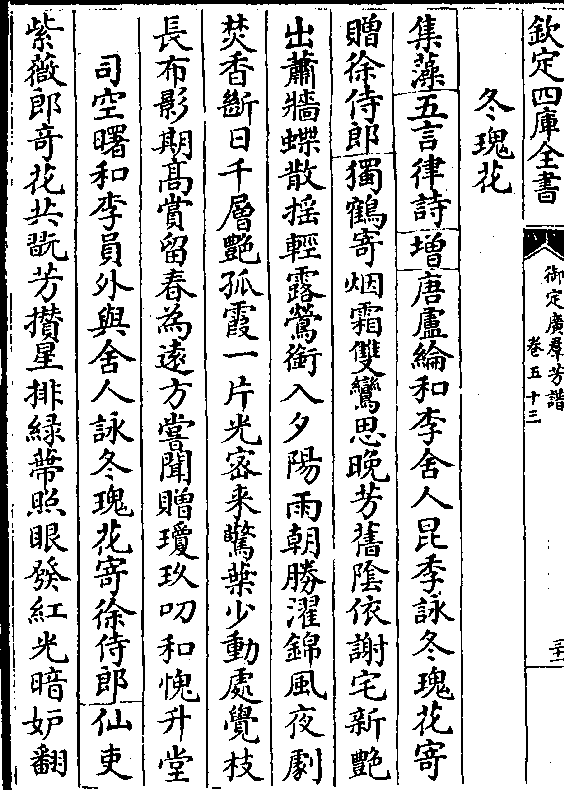 欽定四庫全書
御定廣羣芳譜
卷五十三
冬瑰花
集藻五言律詩増唐盧綸和李舍人昆季詠冬瑰花寄
贈徐侍郎獨鶴寄烟霜雙鸞思晚芳舊陰依謝宅新艷
出蕭牆蝶散揺輕露鶯銜入夕陽雨朝勝濯錦風夜劇
焚香斷日千層艷孤霞一片光宻来驚葉少動處覺枝
長布影期髙賞留春為逺方嘗聞贈瓊玖叨和愧升堂
司空曙和李員外與舍人詠冬瑰花寄徐侍郎仙吏
紫薇郎竒花共翫芳攅星排緑蔕照眼發紅光暗妒翻